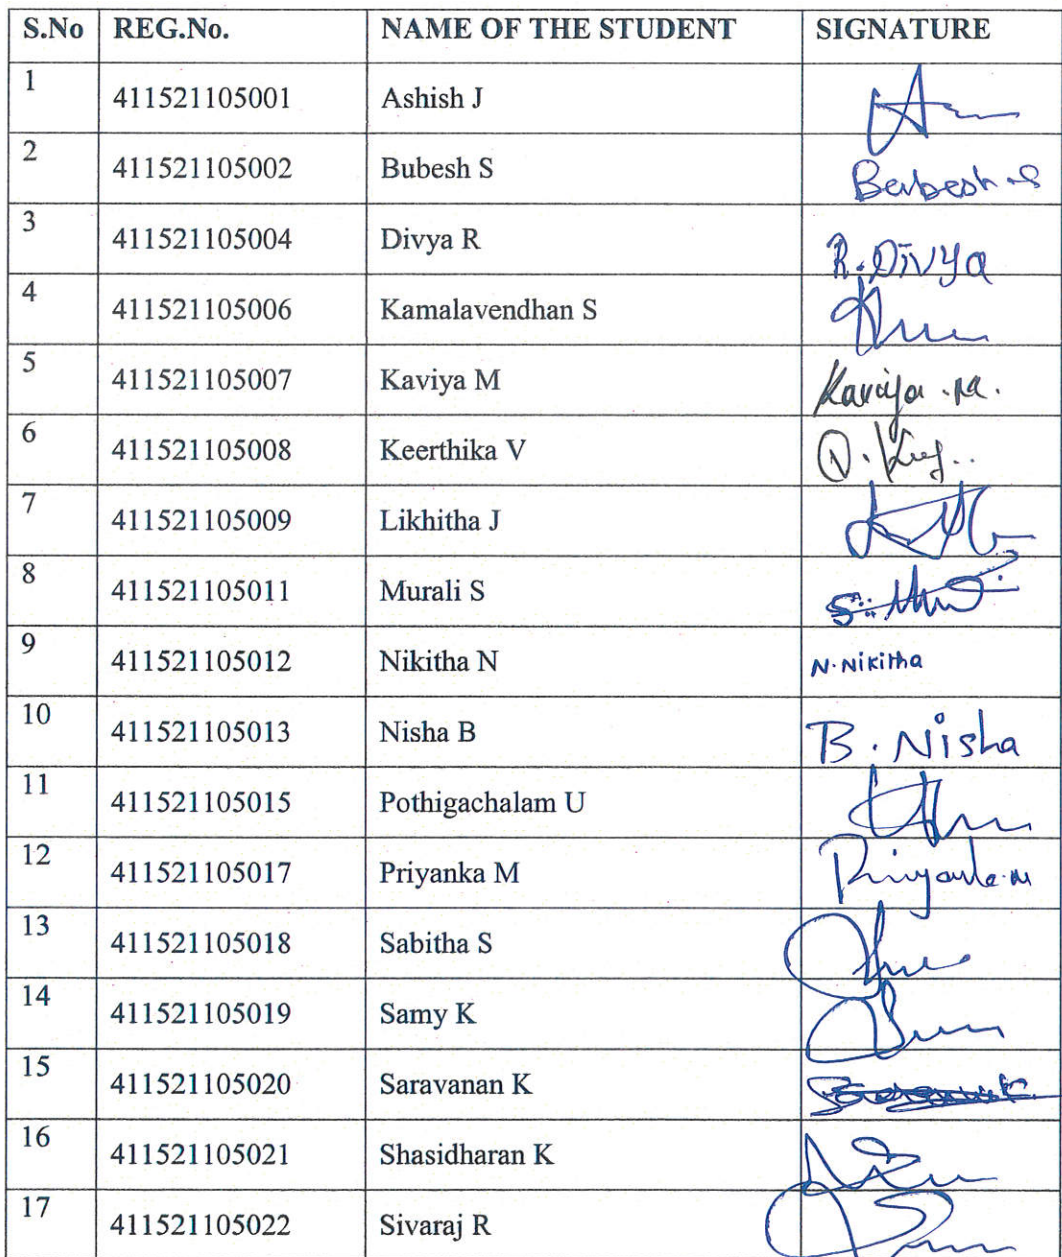 S.No REG.No. NAME OF THE STUDENT SIGNATURE
1 411521105001 Ashish J
2 411521105002 Bubesh S Bubesh S
3 411521105004 Divya R R. Divya
4 411521105006 Kamalavendhan S
5 411521105007 Kaviya M Kaviya .M.
6 411521105008 Keerthika V
7 411521105009 Likhitha J
8 411521105011 Murali S
9 411521105012 Nikitha N N. Nikitha
10 411521105013 Nisha B B. Nisha
11 411521105015 Pothigachalam U
12 411521105017 Priyanka M Priyanka.M
13 411521105018 Sabitha S
14 411521105019 Samy K
15 411521105020 Saravanan K
16 411521105021 Shasidharan K
17 411521105022 Sivaraj R